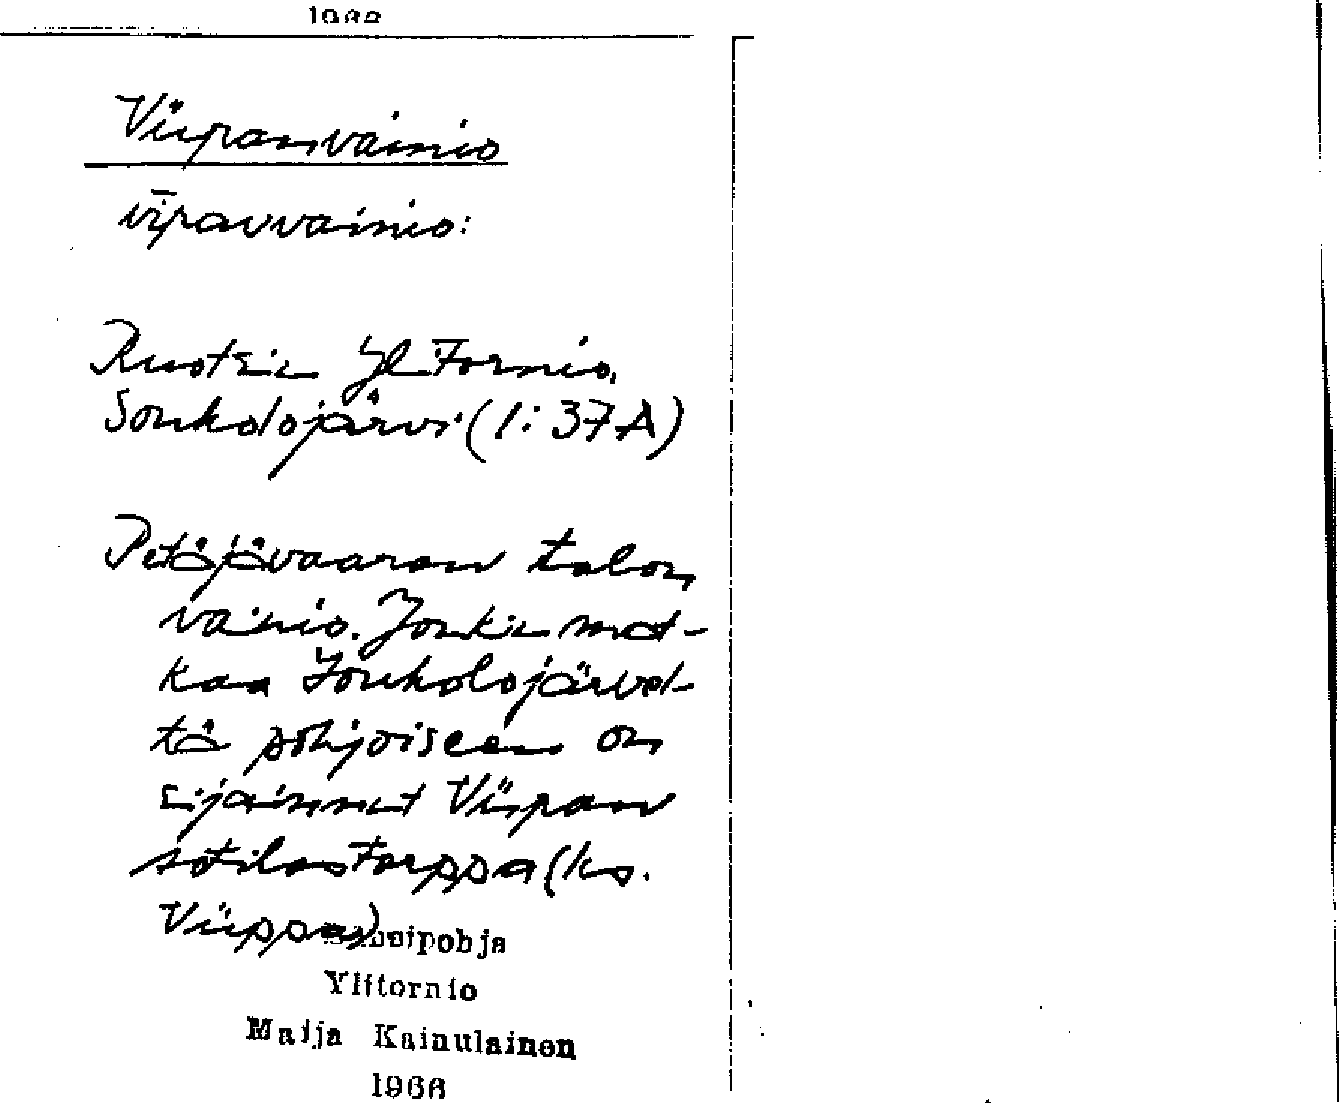 1966
Viipanvainio
vīpavvainio:
Ruotsin Yl Tornio,
Soukolojärvi (1:37A)
Petäjävaaran talon
vainio. Jonkin mat-
kaa Soukolojärvel-
tä pohjoiseen on
sijainnut Viipan
sotilastorppa (ks.
Viippa).
Länsipohja
Ylitornio
Maija Kainulainen
1966